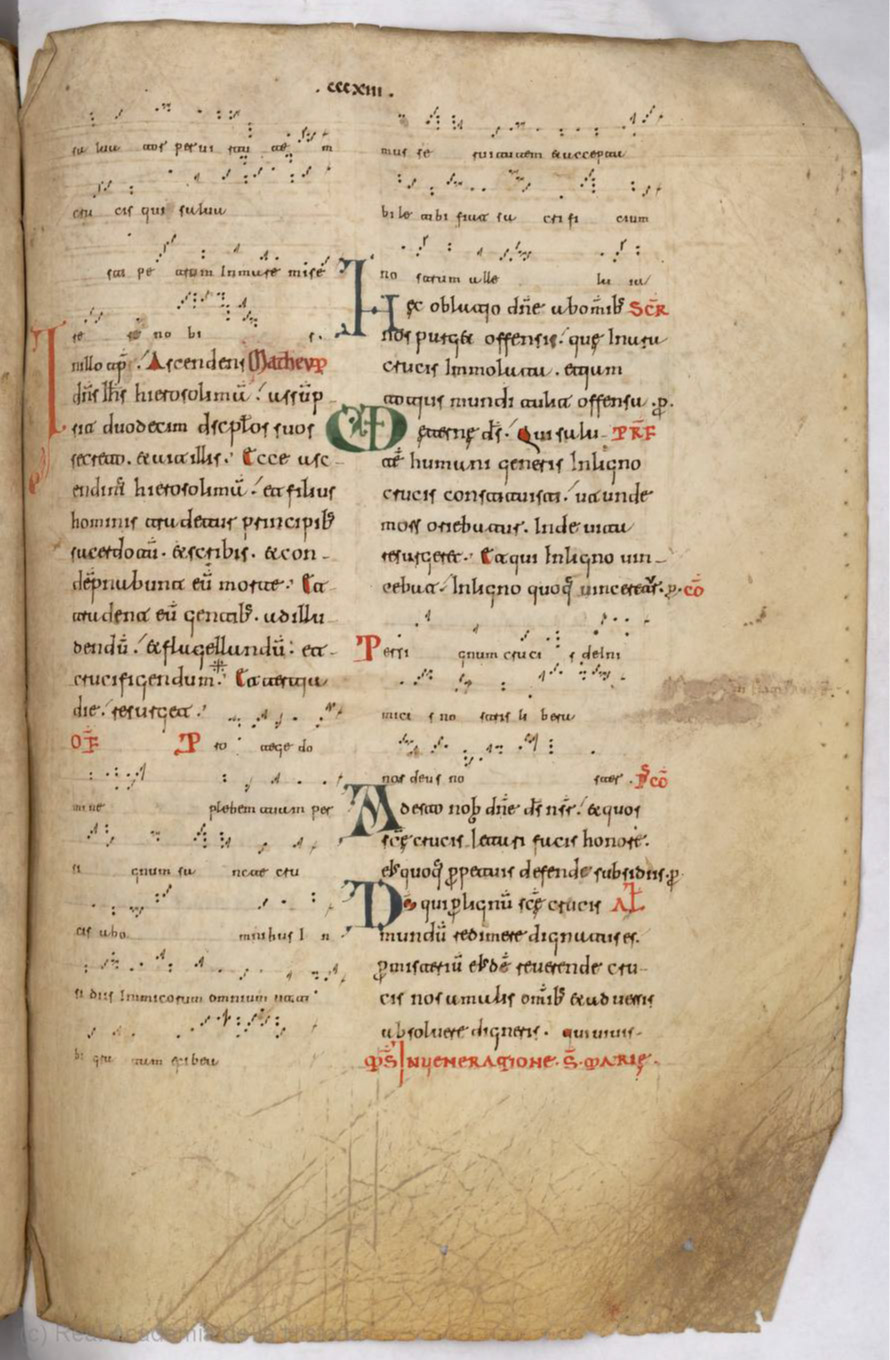 . cccxiii .
sa lua tor per uir tu te m
cru cis qui salua
sti pe trum In mare mise
re re no bi s.
In illo tp̄r. Ascendens Matheum
dn̄s ih̄s hierosolimā. assūp
sit duodecim discp̄los suos
secreto. et ait illis. Ecce asc
endim̄ hierosolimā. et filius
hominis tradetur principib;
sacerdotū. et scribis. et con
dēpnabunt eū morte. Et
tradent eū gentib;. ad illu
dendū. et flagellandū. et
crucifigendum. Et tertia
die. resurget.
OF Pro tege do
mine plebem tuam per
si gnum san ncte cru
cis ab o mnibus I n
si diis Inimicorum omnium ut ti
bi gra tam exibea
mus se ruitutem et accepta
bile tibi fiat sa cri fi cium
no strum alle lu ia
Hec oblatio dn̄e ab om̄ib; SCR
nos purget offensis. que In ara
crucis Immolata. etiam
totius mundi tulit offensa. p.
Eterne ds̄. Qui salu PRF
tē humani generis In ligno
crucis constituisti. ut unde
mors oriebatur. Inde uita
resurgeret. Et qui In ligno uin
cebat. In ligno quoq; uinceretur. p. cō
Per si gnum cruci s de Ini
mici s no stris li bera
nos deus no ster. Pscō
Adesto nob dn̄e ds̄ nr̄. et quos
scē crucis letari facis honore.
eius quoq; perpetuis defende subsidiis. p
Ds̄ qui per lignū scē crucis AL
mundū redimere dignatus es.
per misteriū eiusdē reuerende cru
cis nos a malis om̄ib; et aduersis
absoluere digneris. qui uiuis
MS In ueneratione. S. Marie.